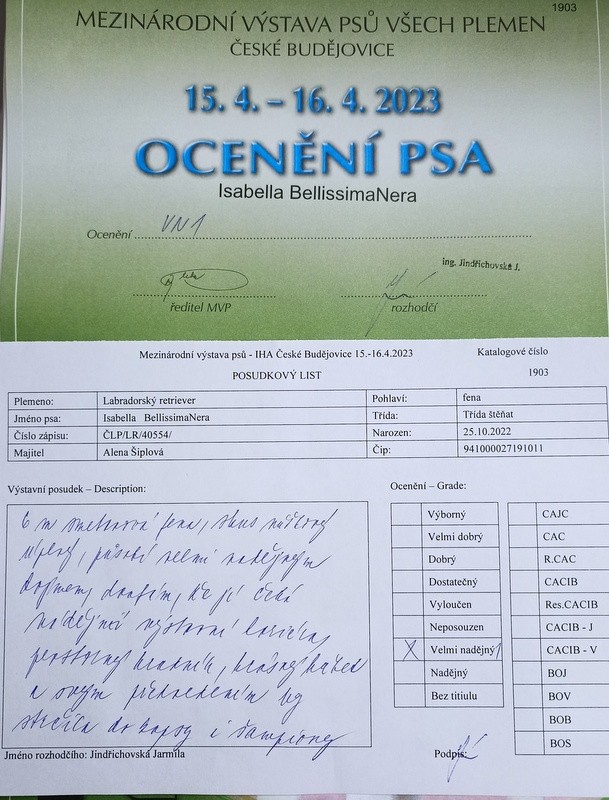 1903
MEZINÁRODNÍ VÝSTAVA PSŮ VŠECH PLEMEN
ČESKÉ BUDĚJOVICE
15. 4. – 16. 4. 2023
OCENĚNÍ PSA
Isabella BellissimaNera
Ocenění VN1
ing. Jindřichovská J.
ředitel MVP rozhodčí
Mezinárodní výstava psů - IHA České Budějovice 15.-16.4.2023 Katalogové číslo
POSUDKOVÝ LIST 1903
Plemeno: Labradorský retriever Pohlaví: fena
Jméno psa: Isabella BellissimaNera Třída: Třída štěňat
Číslo zápisu: ČLP/LR/40554/ Narozen: 25.10.2022
Majitel Alena Šiplová Čip: 941000027191011
Výstavní posudek – Description: Ocenění – Grade:
6 m smetanová fena, skus nůžkový
úplný, působí velmi nadějným
dojmem, doufám, že jí čeká
nadějná výstavní kariéra,
prostorný hrudník, krásný
a svým předvedením by
strčila do kapsy i šampiony
Výborný CAJC
Velmi dobrý CAC
Dobrý R.CAC
Dostatečný CACIB
Vyloučen Res.CACIB
Neposouzen CACIB - J
X Velmi nadějný 1 CACIB - V
Nadějný BOJ
Bez titulu BOV
BOB
BOS
Jméno rozhodčího: Jindřichovská Jarmila Podpis: